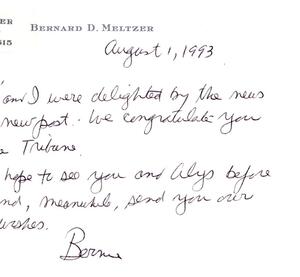 ER BERNARD D. MELTZER
615
August 1, 1993
and I were delighted by the news
new post. We congratulate you
Tribune.
hope to see you and Alys before
nd, meanwhile, send you our
wishes.
Bernie